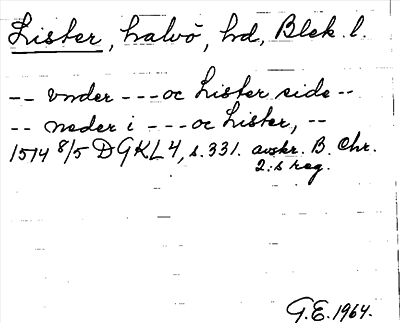 Lister, halvö, hd, Blek. l.
-- vnder --- oc Lister side --
-- neder i --- oc Lister, --
1514 8/5 DGKL 4, s. 331. avskr. B. Chr.
2:s reg.
G.E. 1964.